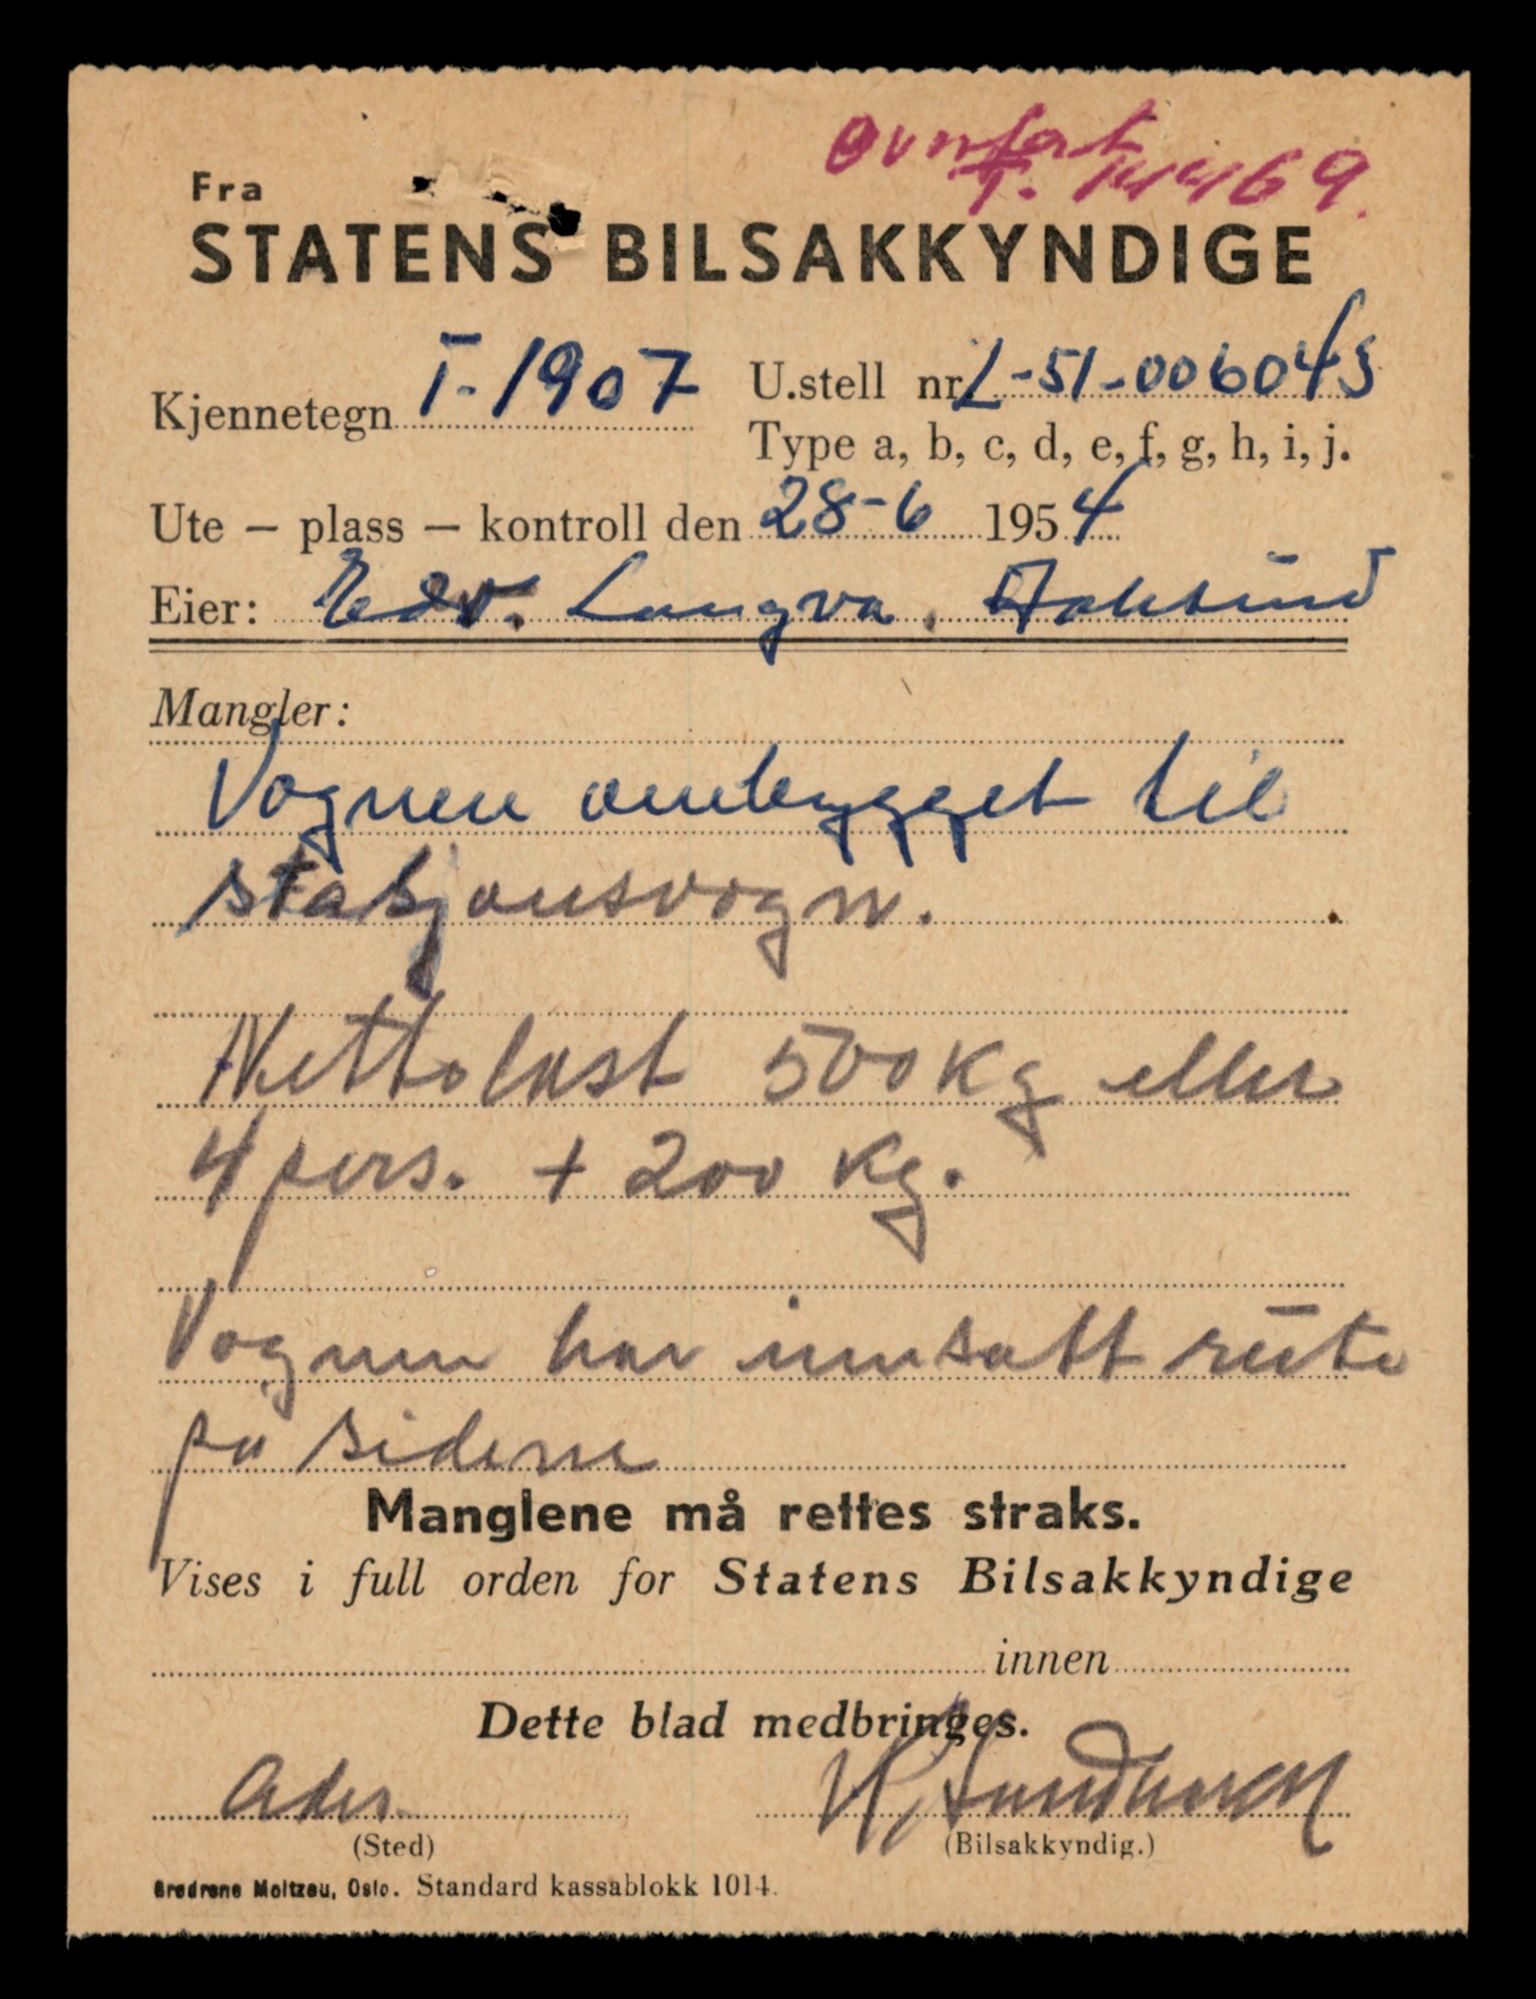 Overfört
T. 14469.
Fra
STATENS BILSAKKYNDIGE
Kjennetegn T-1907 U.stell nr. L-51-006045
Type a, b, c, d, e, f, g, h, i, j.
Ute – plass – kontroll den 28-6 1954
Eier: Edv. Langva,
Mangler:
Vognen ombygget til
stasjonsvogn.
Nettolast 500 kg eller
4 pers. + 200 kg.
Vognen har innsatt rute
på sidene
Manglene må rettes straks.
Vises i full orden for Statens Bilsakkyndige
innen
Dette blad medbringes.
(Sted) (Bilsakkyndig.)
Brødrene Moltzau, Oslo. Standard kassablokk 1014.